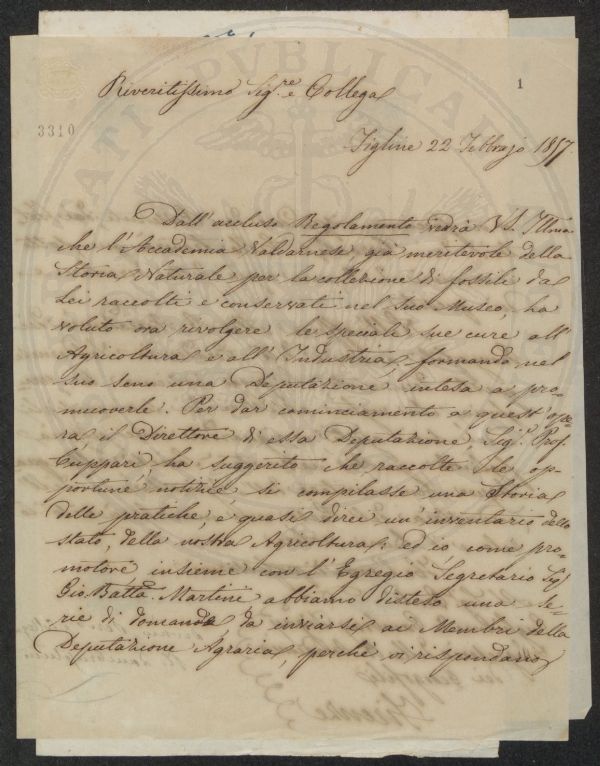 1
Riveritissimo Sig.re e Collega
3310
Figline 22 Febbrajo 1857.
Dall'accluso Regolamento vedrà VS. Illma
che l'Accademia Valdarnese già meritevole della
Storia Naturale per la collezione di fossili da
Lei raccolti e conservati nel suo Museo, ha
voluto ora rivolgere le speciali sue cure all'
Agricoltura e all'Industria, formando nel
suo seno una Deputazione intesa a pro-
muoverle. Per dar cominciamento a quest'ope-
ra il Direttore di essa Deputazione, Sig.r Prof.
Cuppari, ha suggerito che raccolte le op-
portune notizie, si compilasse una Storia
delle pratiche, e quasi direi un'inventario dello
stato, della nostra Agricoltura; ed io come pro-
motore insieme con l'Egregio Segretario Sig.
Gio. Batta Martini abbiamo disteso una se-
rie di domande, da inviarsi ai Membri della
Deputazione Agraria, perchè vi rispondano